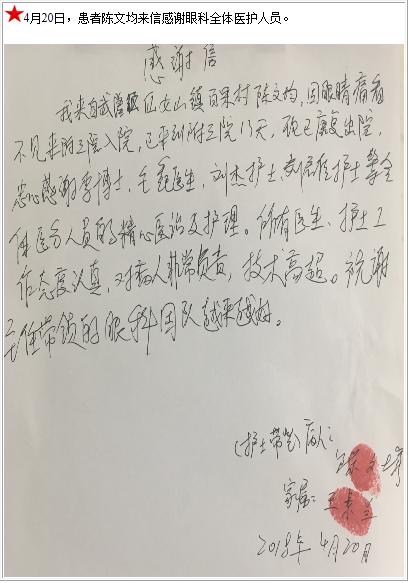 ★4月20日，患者陈文均来信感谢眼科全体医护人员。
感谢信
我来自武隆区仙女山镇百果村陈文均，因眼睛痛看
不见来附三院入院，已来到附三院13天，现已康复出院，
衷心感谢李博士，毛 医生，刘杰护士， 护士等全
体医务人员的精心医治及护理。所有医生、护士工
作态度认真，对病人非常负责，技术高超。祝谢
主任带领的眼科团队越来越好。
(护士带笔)病人：陈文均
家属：王
2018年4月20日